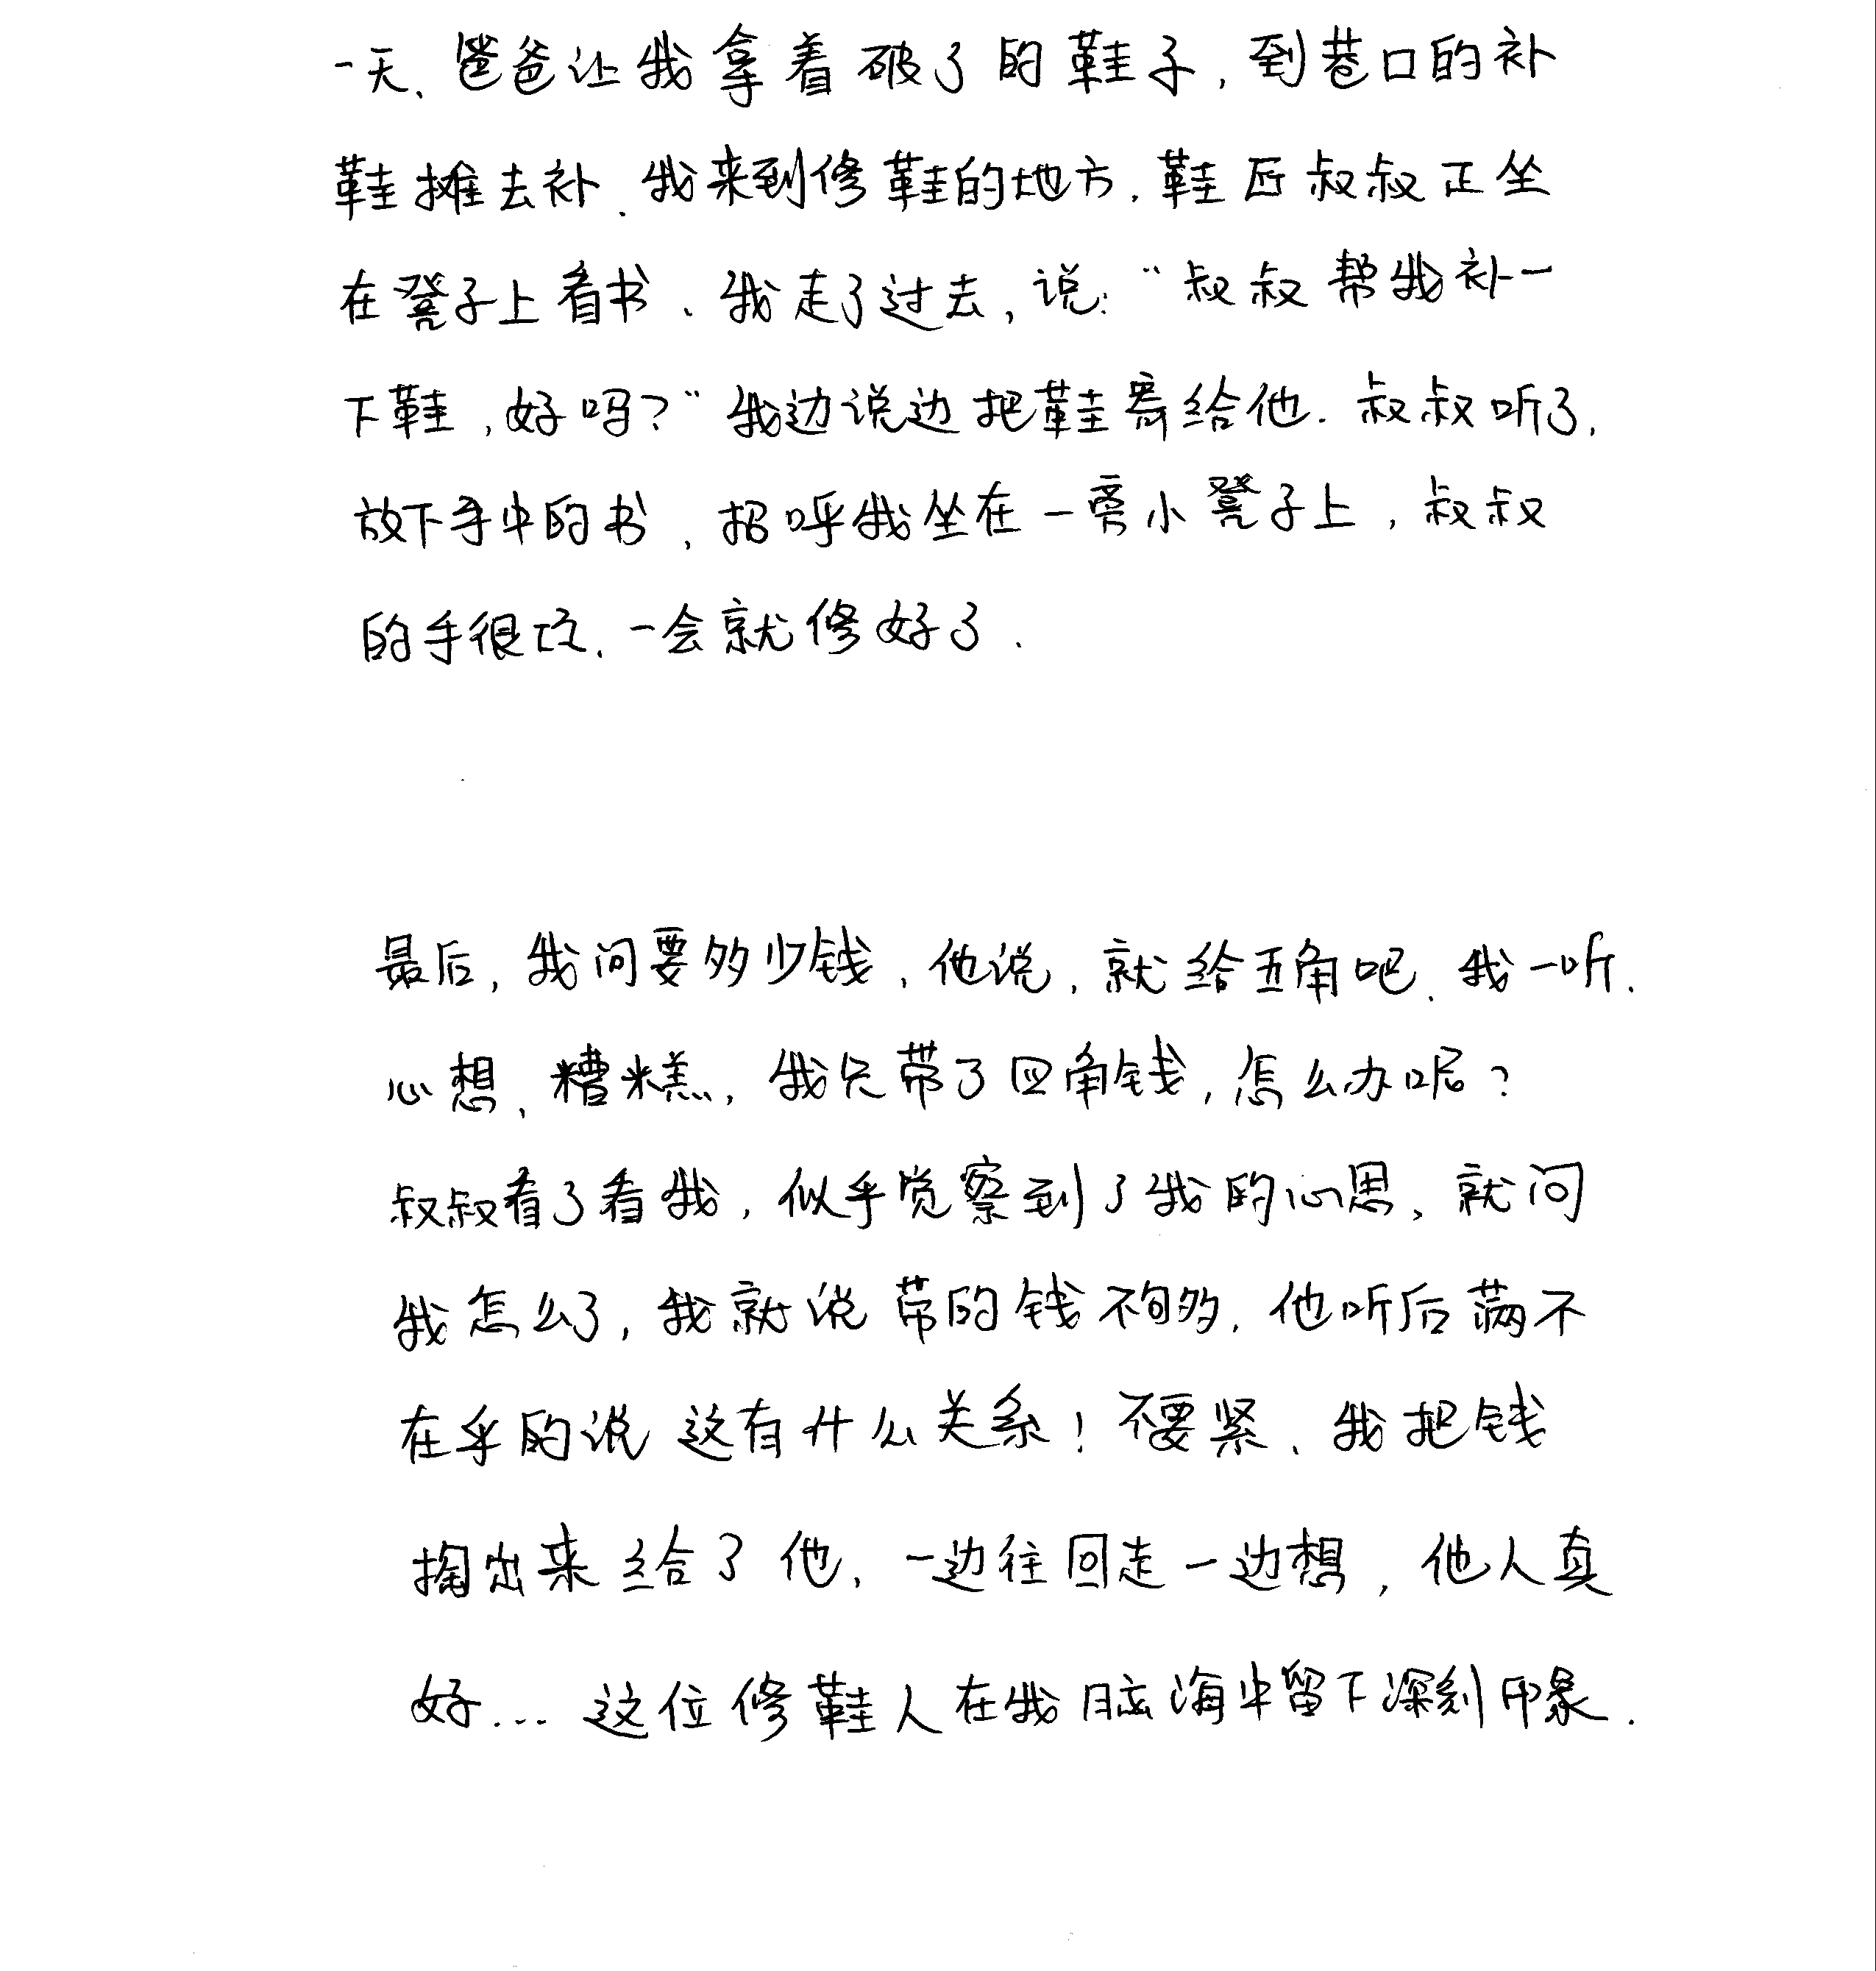 一天、爸爸让我拿着破了的鞋子,到巷口的补
鞋摊去补、我来到修鞋的地方,鞋匠叔叔正坐
在凳子上看书、我走了过去,说:“叔叔帮我补一
下鞋,好吗?”我边说边把鞋 给他.叔叔听了,
放下手中的书,招呼我坐在一 小凳子上,叔叔
的手很巧、一会就修好了.
最后,我问要多少钱,他说,就给五角吧、我一听.
心想、糟糕,我只带了四角钱,怎么办呢?
叔叔看了看我,似乎觉察到了我的心思、就问
我怎么了,我就说带的钱不够多,他听后满不
在乎的说 这有什么关系!不要紧、我把钱
掏出来给了他,一边往回走一边想,他人真
好...这位修鞋人在我脑海中留下深刻印象.